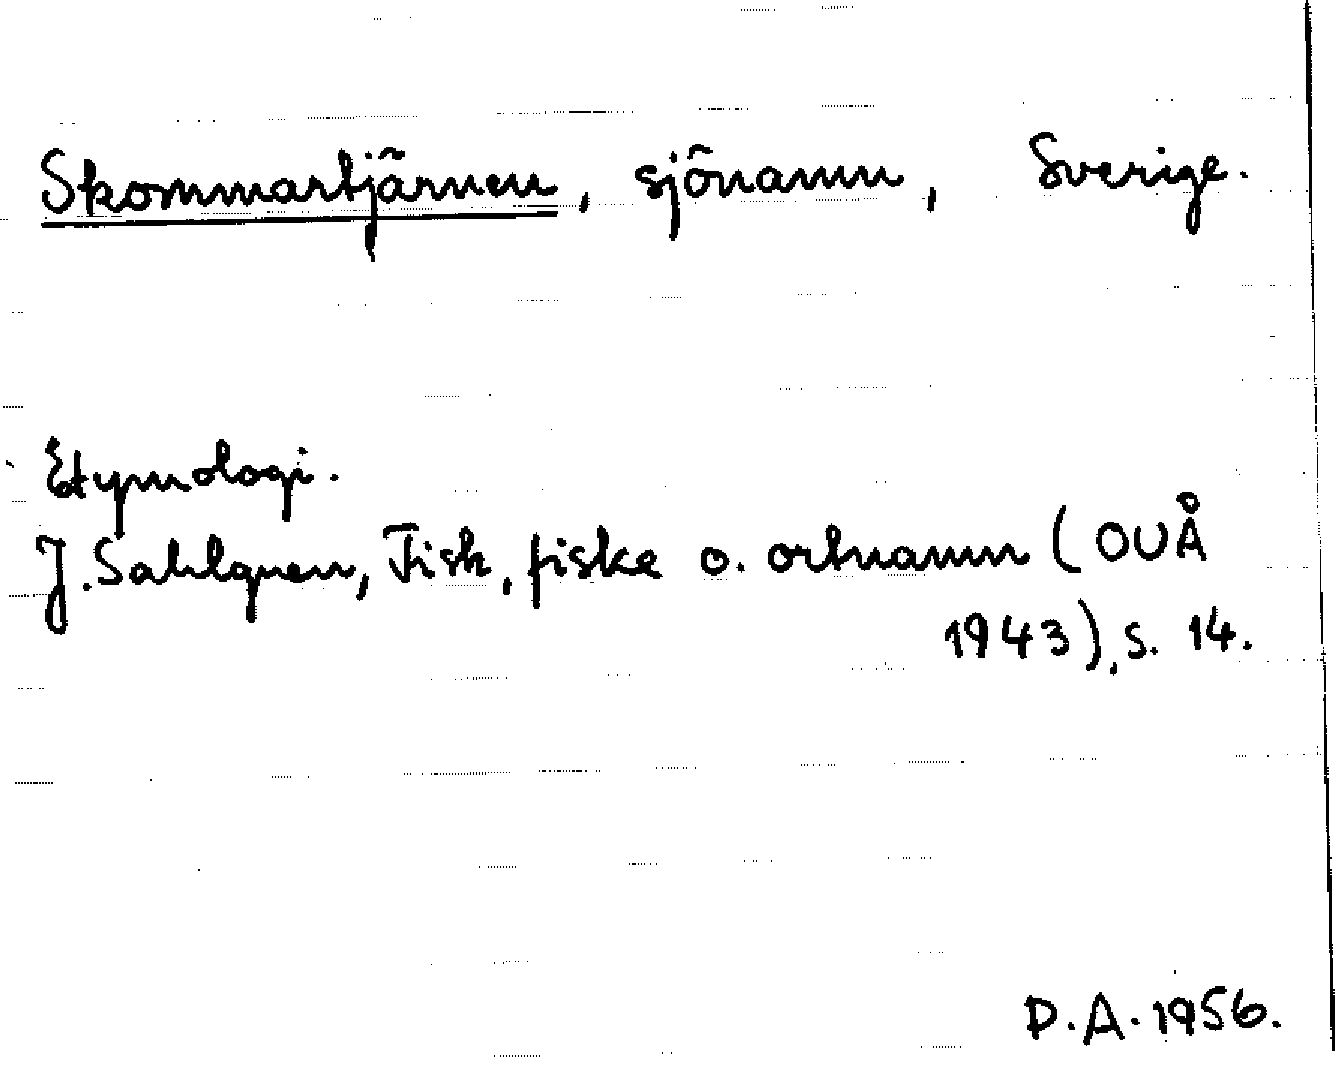 Skommartjärnen, sjönamn, Sverige.
Etymologi.
J. Sahlgren, Fisk, fiske o. ortnamn (OUÅ
1943), s. 14.
D.A. 1956.